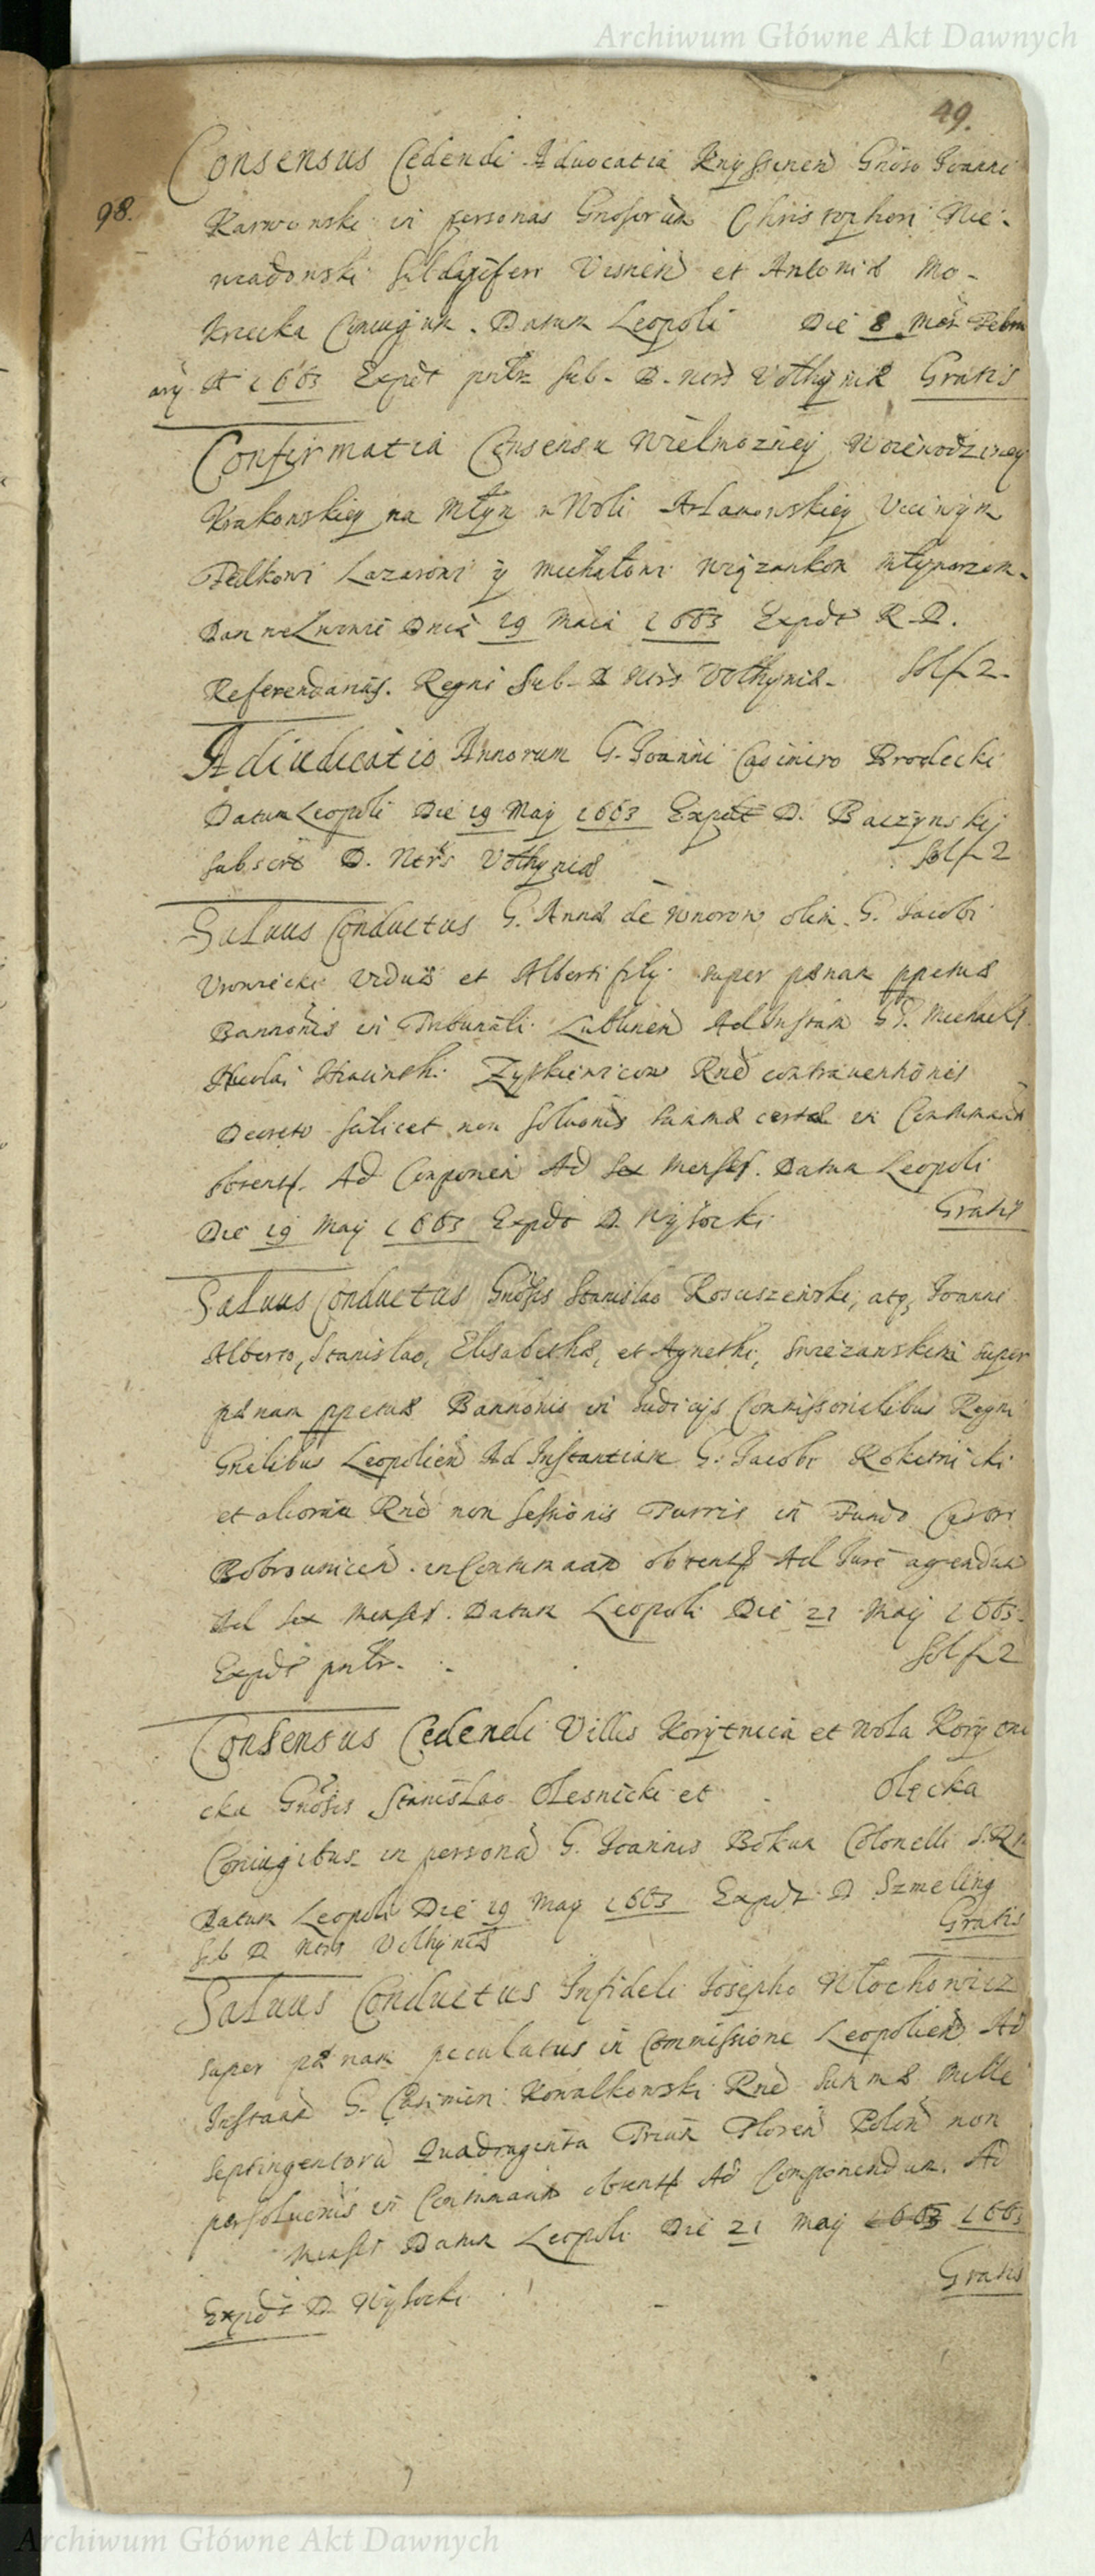 Archiwum Główne Akt Dawnych
49.
Consensus Cedendi Advocatia Knyssinen Gnoso Joanni
98.
Karwowski in personas Gnosorum Christophori Nie-
wiadomski Subdapiferi Visnen et Antonia Mo-
krzecka Coniugum. Datum Leopoli Die 8 Mens Febru
arij A 1663 Expedt pntr Sub. D. nors Vołhyniæ Gratis
Confirmatia Consensu Wielmozney Woiewodziney
Krakowskiey na Młyn w Woli Adamowskiey Vcciwym
Fedkowi Lazarowi y Michałowi młynarzom.
Dan we Lwowie Dnia 19 Maia 1663 Expdt R. D.
Referendarius. Regni Sub. D Nors Vołhyniæ. Sol f 2.
Adiudicatio Annorum G. Joanni Casimiro Brodecki
Datum Leopoli Die 19 Maij 1663 Expdt D. Baczynskij
Subscrt D. Ntrs Vołhyniæ Sol f 2
Salvus Conductus G. Annæ de olim G. Jacobi
Viduæ et Alberti filij super pænam ppetuæ
Bannonis in Tribunali Lublinen Ad Instan GG. Michaelis
Nicolai Rne contraventionis
Decreto scilicet non Solvonis Summæ certæ in Contumaam
obtent. Ad Componen Ad Sex Menses. Datum Leopoli
Die 19 Maij 1663 Expdt D. Wysocki Gratis
Salvus Conductus Gnosis Stanislao Kosciszewski, atq, Joanni
Alberto, Stanislao, Elisabethæ, et Agnethi, super
pænam ppetuæ Bannonis in Judicijs Commissorialibus Regni
Gnalibus Leopolien Ad Instantiam G. Jacobi Rokitnicki
et aliorum Rne non sessionis Turris in Fundo Castri
Bobrownicen. in Contumaam obtent Ad Jure agendum
Ad Sex Menses. Datum Leopoli Die 21 Maij 1663.
Expdt pntr. Sol f 2
Consensus Cedendi Villis Korytnica et Wola Korytni
cka Gnosis Stanislao Olesnicki et Olęcka
Coniugibus in persona G. Joannis Bokum Colonelli S. R M
Datum Leopoli Die 19 Maij 1663 Expdt D Szmeling
Sub D Nors Vołhyniæ Gratis
Salvus Conductus Infideli Josepho Włochowicz
super pænam peculatus in Commissione Leopolien Ad
Instaam G. Casimiri Kowalkowski Rne Summæ Mille
Septingentora Quadraginta Trium Floren Polon non
persolvenis in Contumaam obtent Ad Componendum. Ad
Menses Datum Leopoli Die 21 Maij 1663 1663
Expdt D Wysocki Gratis
Archiwum Główne Akt Dawnych